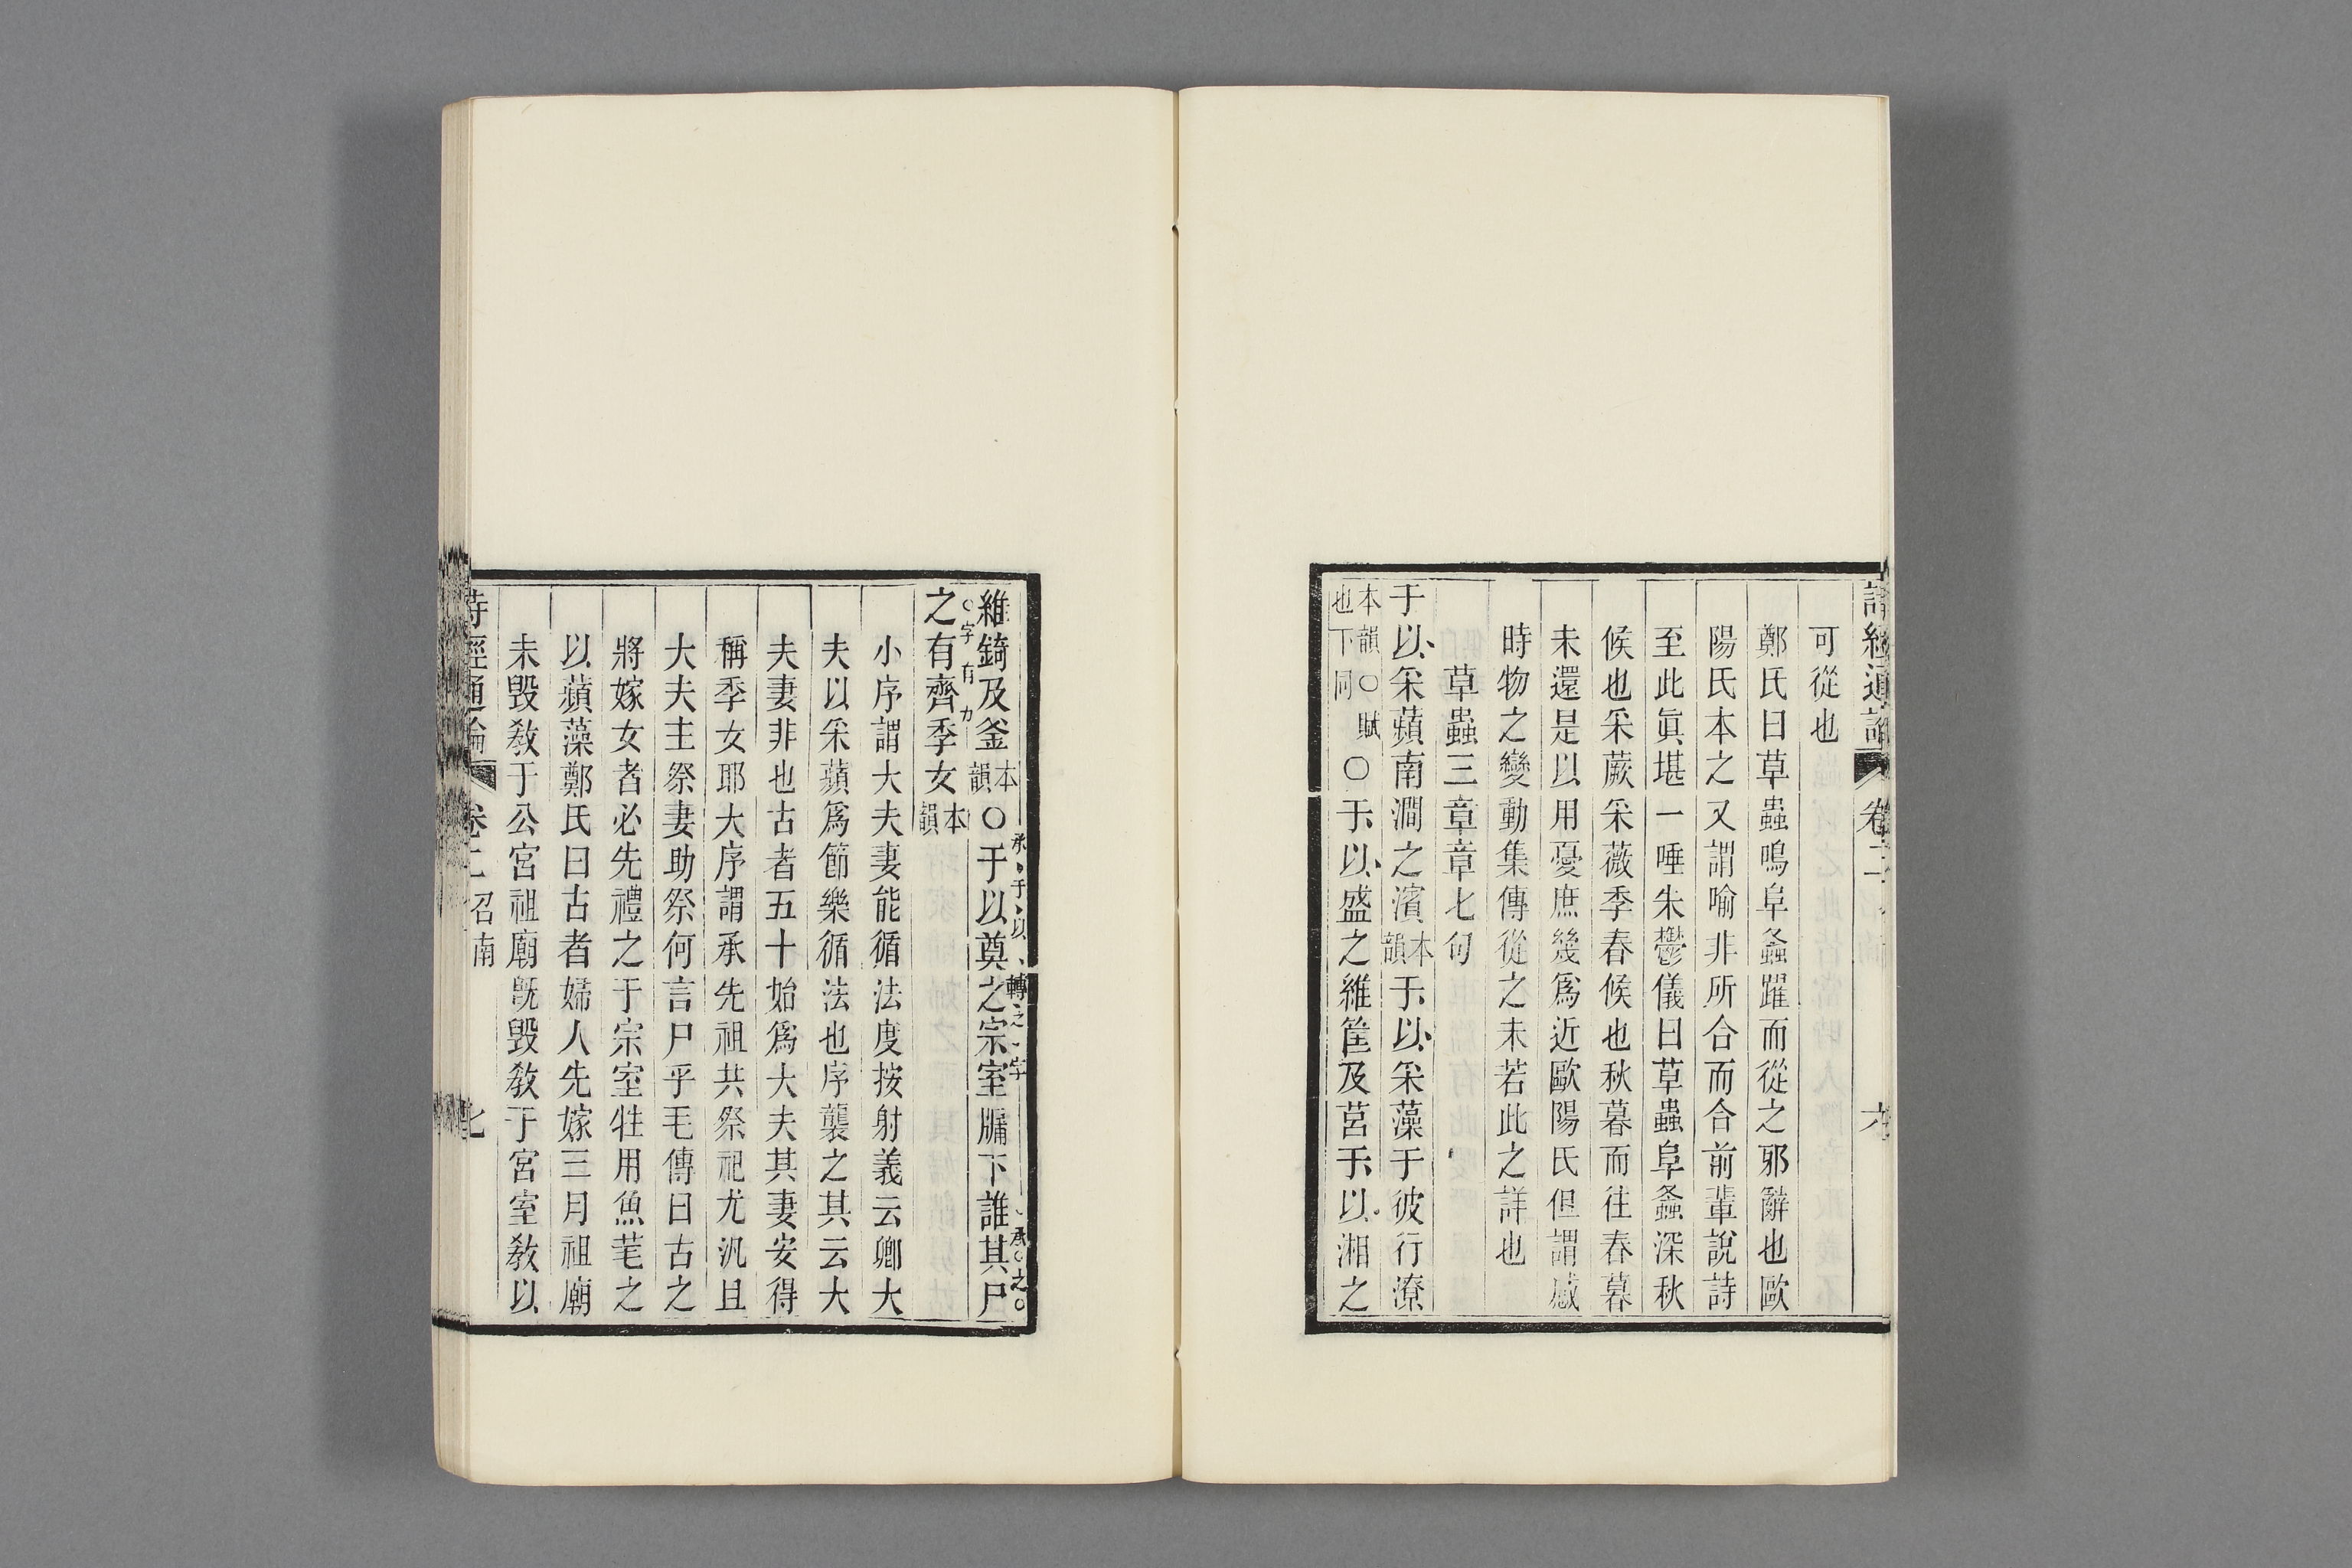 詩經通論 卷二 六
可從也
鄭氏曰草蟲鳴阜螽躍而從之邪辭也歐
陽氏本之又謂喻非所合而合前輩說詩
至此眞堪一唾朱鬱儀曰草蟲阜螽深秋
候也采蕨采薇季春候也秋暮而往春暮
未還是以用憂庶幾爲近歐陽氏但謂感
時物之變動集傳從之未若此之詳也
草蟲三章章七句
于以采蘋南澗之濱本韻于以采藻于彼行潦
本韻○賦也下同○于以盛之維筐及筥于以湘之
維錡及釜本韻○于以奠之宗室牖下誰其尸
承于以轉之字
承之
之有齊季女本韻
字有力
小序謂大夫妻能循法度按射義云卿大
夫以采蘋爲節樂循法也序襲之其云大
夫妻非也古者五十始爲大夫其妻安得
稱季女耶大序謂承先祖共祭祀尤汎且
大夫主祭妻助祭何言尸乎毛傳曰古之
將嫁女者必先禮之于宗室牲用魚芼之
以蘋藻鄭氏曰古者婦人先嫁三月祖廟
未毀教于公宮祖廟旣毀教于宮室教以
詩經通論 卷二 召南 七